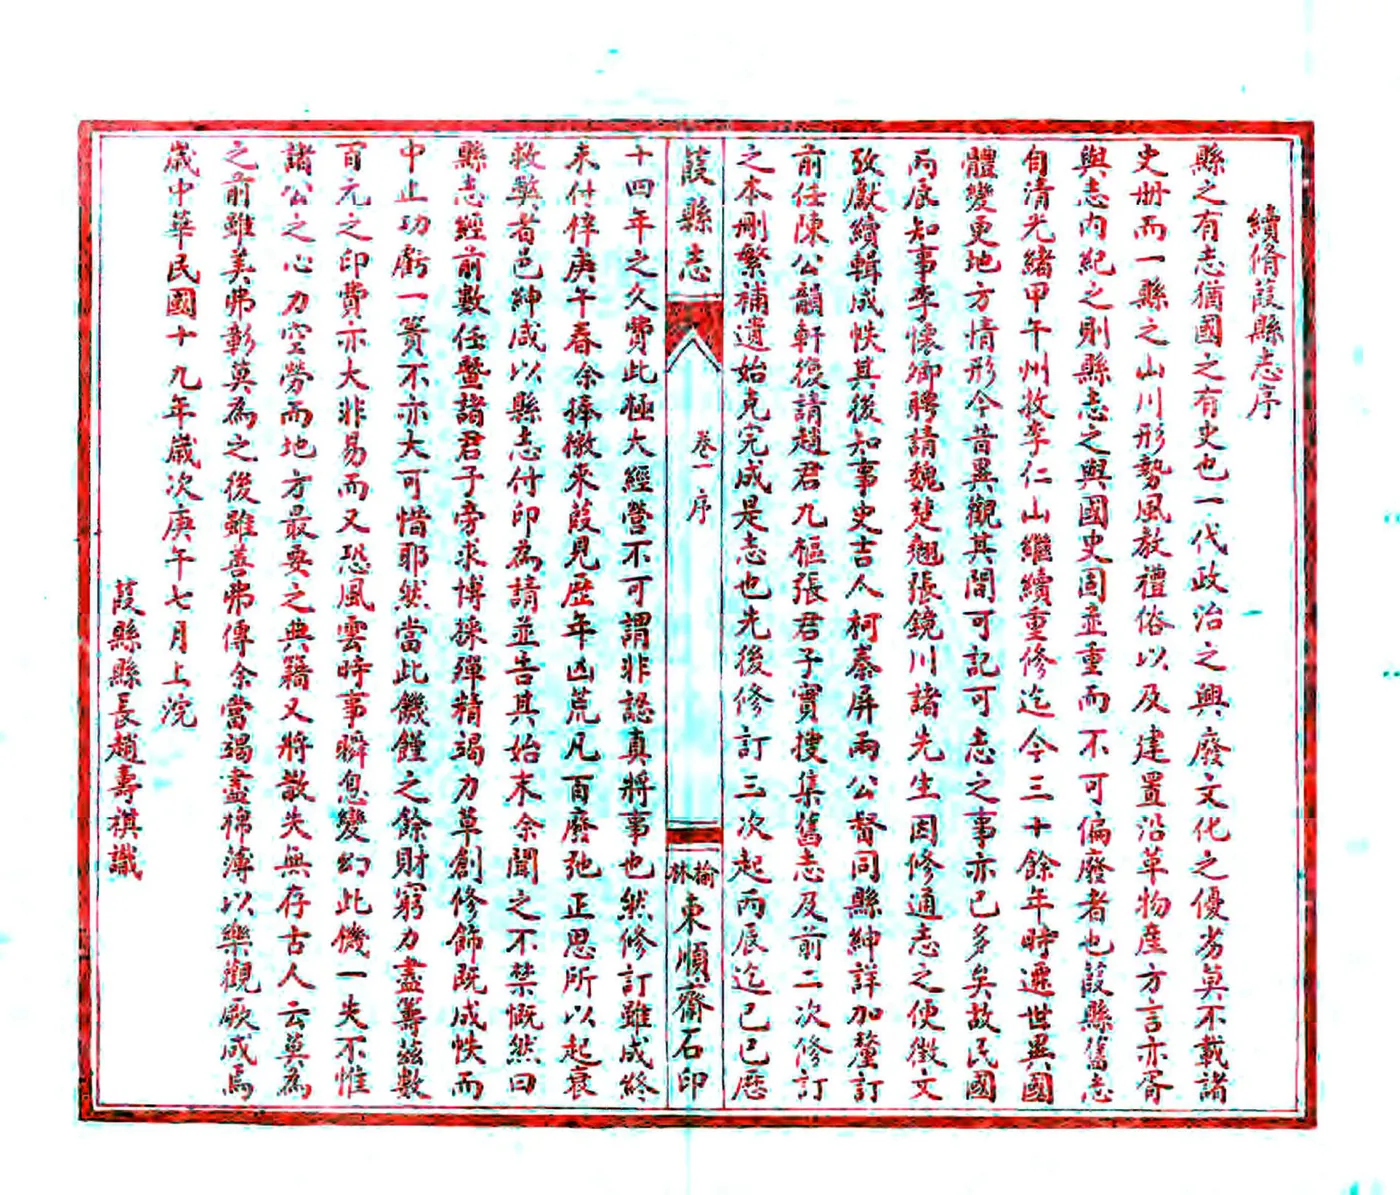 續脩葭縣志序
縣之有志猶國之有史也一代政治之興廢文化之優劣莫不載諸
史册而一縣之山川形勢風教禮俗以及建置沿革物產方言亦胥
與志內紀之則縣志之與國史固並重而不可偏廢者也葭縣舊志
自清光緒甲午州牧李仁山繼續重修迄今三十餘年時遷世異國
體變更地方情形今昔異觀其間可記可志之事亦已多矣故民國
丙辰知事李懷卿聘請魏楚翹張鏡川諸先生因修通志之便徵文
攷獻續輯成帙其後知事史吉人柯泰屏兩公督同縣紳詳加釐訂
前任陳公韻軒復請趙君九樞張君子實搜集舊志及前二次修訂
之本刪繁補遺始克完成是志也先後修訂三次起丙辰迄己巳歷
葭縣志
卷一 序
榆林東順齋石印
十四年之久費此極大經營不可謂非認真將事也然修訂雖成終
未付梓庚午春余捧檄來葭見歷年凶荒凡百廢弛正思所以起衰
救弊者邑紳咸以縣志付印為請並告其始末余聞之不禁慨然曰
縣志經前數任暨諸君子旁求博採殫精竭力草創修飾既成帙而
中止功虧一簣不亦大可惜耶然當此饑饉之餘財窮力盡籌茲數
百元之印費亦大非易而又恐風雲時事瞬息變幻此機一失不惟
諸公之心力空勞而地方最要之典籍又將散失無存古人云莫為
之前雖美弗彰莫為之後雖善弗傳余當竭盡棉薄以樂觀厥成焉
歲中華民國十九年歲次庚午七月上浣
葭縣縣長趙壽祺識